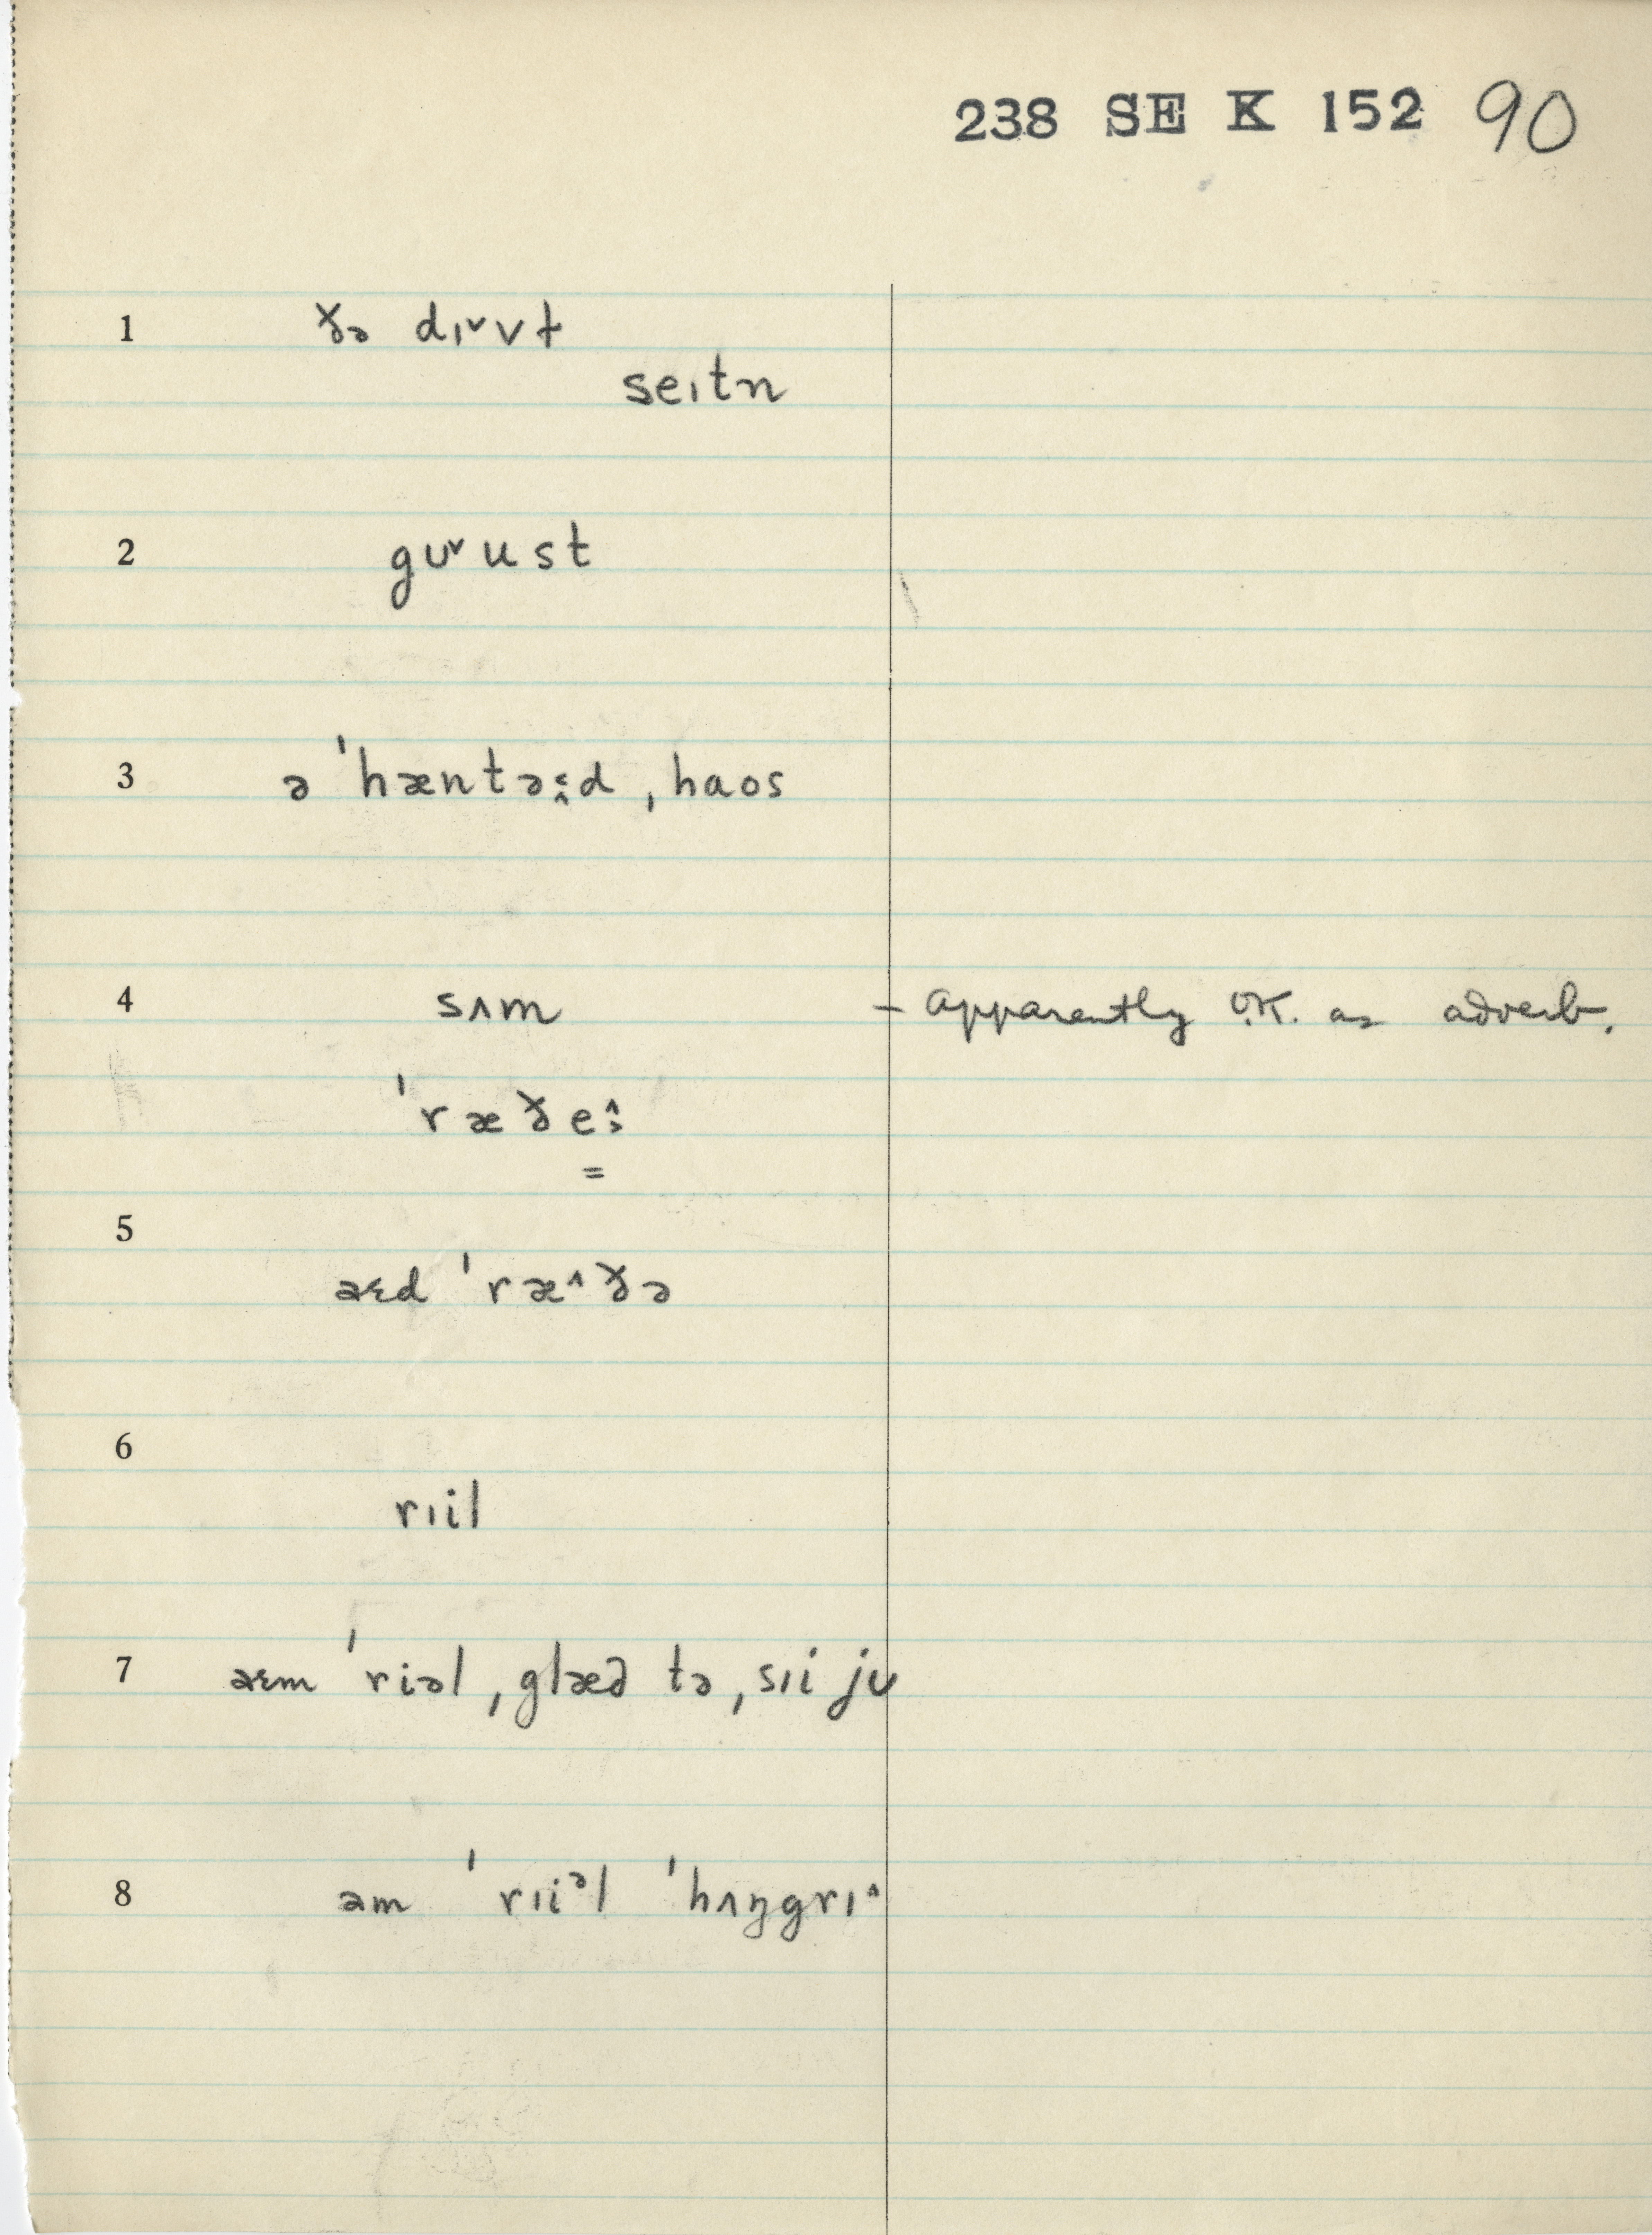 238 SE K 152 90
1 ðə dɪ˅vɫ
seɪtn
2 gʊ˅ust
3 ə ˈhæntəɛ̭d ˌhaos
4 sʌm - apparently O.K. as adverb.
ˈræðeɜ̂
=
5
aɛd ˈræ˄ðə
6
rɪil
7 aɛm ˈriəl ˌglæd tə ˌsɪi jʊ
8 əm ˈrɪiᵊl ˈhʌŋgrɪ˄